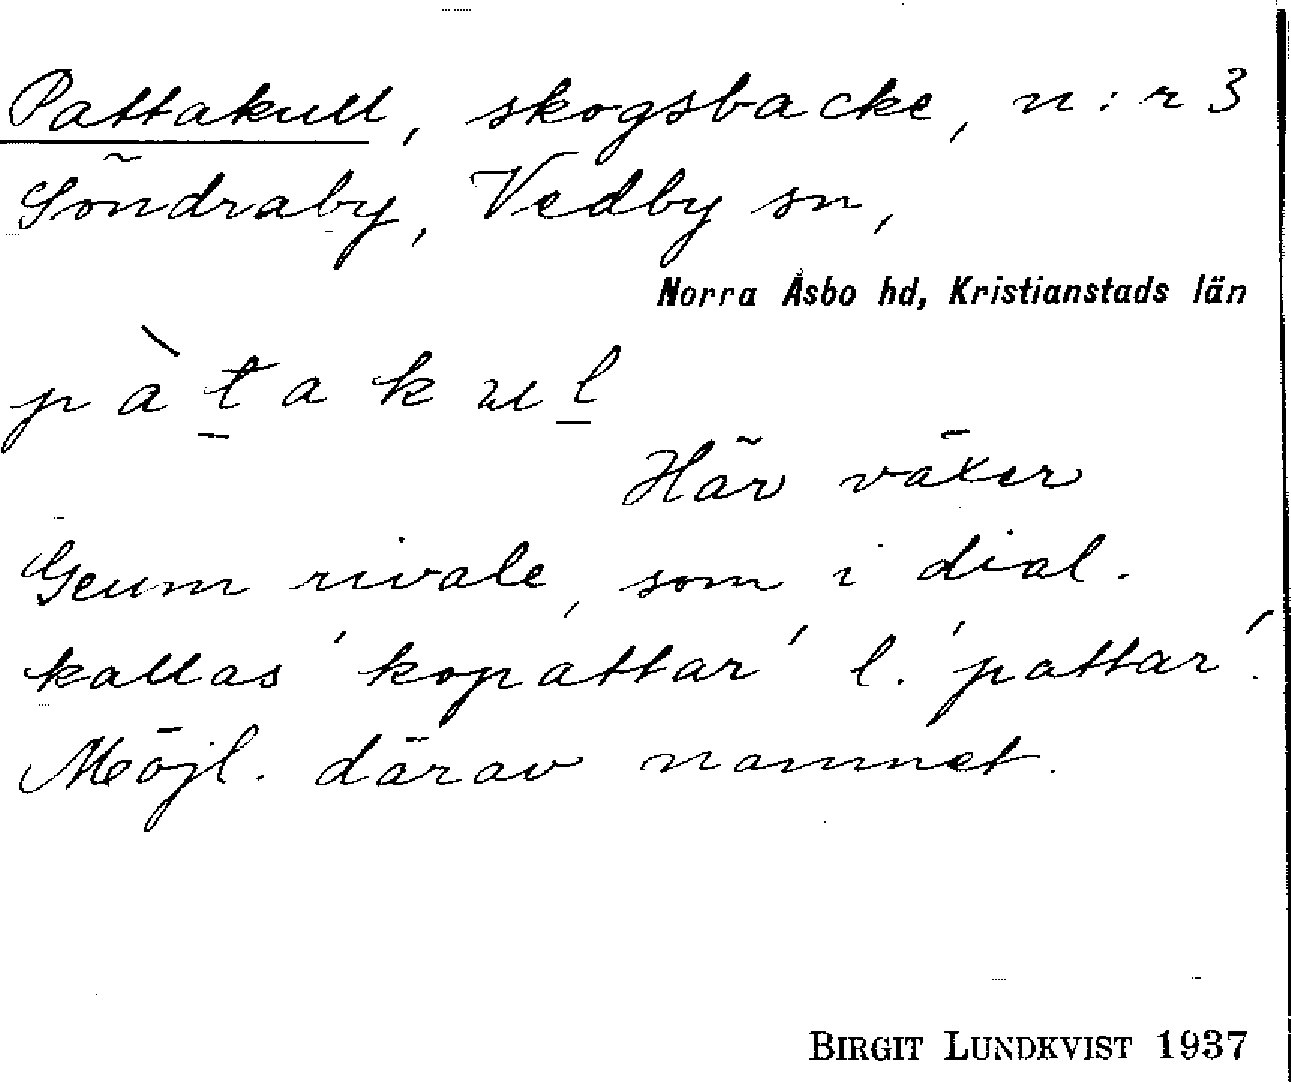 Pattakull, skogsbacke, n:r 3
Söndraby, Vedby sn,
Norra Åsbo hd, Kristianstads län
pàt̲akul̲
Här växer
Geum rivale, som i dial.
kallas 'kopattar' l. 'pattar'.
Möjl. därav namnet.
BIRGIT LUNDKVIST 1937